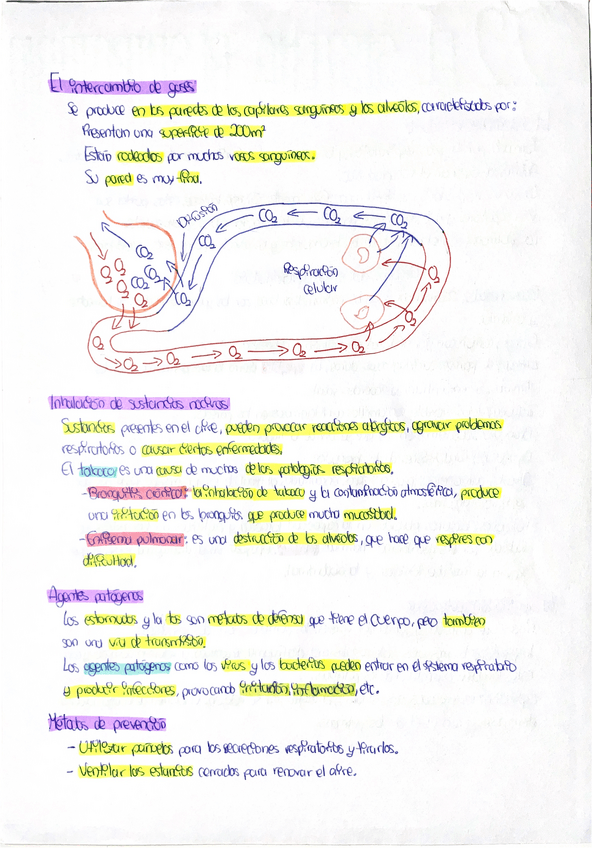 El intercambio de gases
Se produce en las paredes de los capilares sanguíneos y los alveolos, caracterizados por:
Presentan una superficie de 200m²
Están rodeados por muchos vasos sanguíneos.
Su pared es muy fina.
Difusión
CO₂ CO₂ CO₂
CO₂
CO₂ CO₂ CO₂ CO₂
O₂ O₂ O₂ O₂ O₂
Respiración
celular
O₂
O₂
O₂ O₂ O₂ O₂ O₂ O₂
Inhalación de sustancias nocivas
Sustancias presentes en el aire, pueden provocar reacciones alérgicas, agravar problemas
respiratorios o causar ciertas enfermedades.
El tabaco es una causa de muchas de las patologías respiratorias.
-Bronquitis crónica: la inhalación de tabaco y la contaminación atmosférica, produce
una irritación en los bronquios que produce mucha mucosidad.
-Enfisema pulmonar: es una destrucción de los alveolos, que hace que respires con
dificultad.
Agentes patógenos
Los estornudos y la tos son métodos de defensa que tiene el cuerpo, pero también
son una vía de transmisión.
Los agentes patógenos como los virus y las bacterias pueden entrar en el sistema respiratorio
y producir infecciones, provocando irritación, inflamación, etc.
Métodos de prevención
- Utilizar pañuelos para las secreciones respiratorias y tirarlos.
- Ventilar las estancias cerradas para renovar el aire.